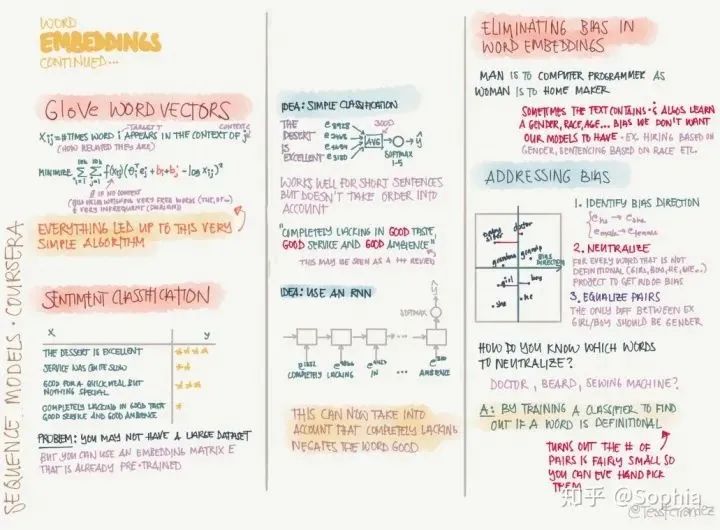 WORD
EMBEDDINGS
CONTINUED...
GloVe WORD VECTORS
Xij = #TIMES WORD i APPEARS IN THE CONTEXT OF j
TARGET
CONTEXT
(HOW RELATED THEY ARE)
MINIMIZE
10k 10k
i=1 j=1
EVERYTHING LED UP TO THIS VERY
SIMPLE ALGORITHM
SENTIMENT CLASSIFICATION
X Y
THE DESSERT IS EXCELLENT
SERVICE WAS QUITE SLOW
GOOD FOR A QUICK MEAL BUT
NOTHING SPECIAL
COMPLETELY LACKING IN GOOD TASTE
GOOD SERVICE AND GOOD AMBIENCE
PROBLEM: YOU MAY NOT HAVE A LARGE DATASET
BUT YOU CAN USE AN EMBEDDING MATRIX E
THAT IS ALREADY PRE-TRAINED
SEQUENCE MODELS · COURSERA
IDEA: SIMPLE CLASSIFICATION
THE
DESERT
IS
EXCELLENT
e8928
e3180
300D
AVG
ŷ
SOFTMAX
1-5
WORKS WELL FOR SHORT SENTENCES
BUT DOESN'T TAKE ORDER INTO
ACCOUNT
"COMPLETELY LACKING IN GOOD TASTE,
GOOD SERVICE AND GOOD AMBIENCE"
THIS MAY BE SEEN AS A +++ REVIEW
IDEA: USE AN RNN
ŷ
SOFTMAX
e1852
COMPLETELY LACKING IN ... AMBIENCE
THIS CAN NOW TAKE INTO
ACCOUNT THAT COMPLETELY LACKING
NEGATES THE WORD GOOD
ELIMINATING BIAS IN
WORD EMBEDDINGS
MAN IS TO COMPUTER PROGRAMMER AS
WOMAN IS TO HOME MAKER
SOMETIMES THE TEXT CONTAINS · & ALGOS LEARN
A GENDER, RACE, AGE... BIAS WE DON'T WANT
OUR MODELS TO HAVE · EX. HIRING BASED ON
GENDER, SENTENCING BASED ON RACE ETC.
ADDRESSING BIAS
baby
sitter
doctor
grandma
grandpa
BIAS
DIRECTION
girl
boy
she
he
1. IDENTIFY BIAS DIRECTION
ehe → eshe
emale → efemale
2. NEUTRALIZE
FOR EVERY WORD THAT IS NOT
DEFINITIONAL (GIRL, BOY, HE, WE...)
PROJECT TO GET RID OF BIAS
3. EQUALIZE PAIRS
THE ONLY DIFF BETWEEN EX
GIRL/BOY SHOULD BE GENDER
HOW DO YOU KNOW WHICH WORDS
TO NEUTRALIZE?
DOCTOR, BEARD, SEWING MACHINE?
A: BY TRAINING A CLASSIFIER TO FIND
OUT IF A WORD IS DEFINITIONAL
TURNS OUT THE # OF
PAIRS IS FAIRLY SMALL SO
YOU CAN EVE HAND PICK
THEM
知乎 @Sophia
@TessFerrandez